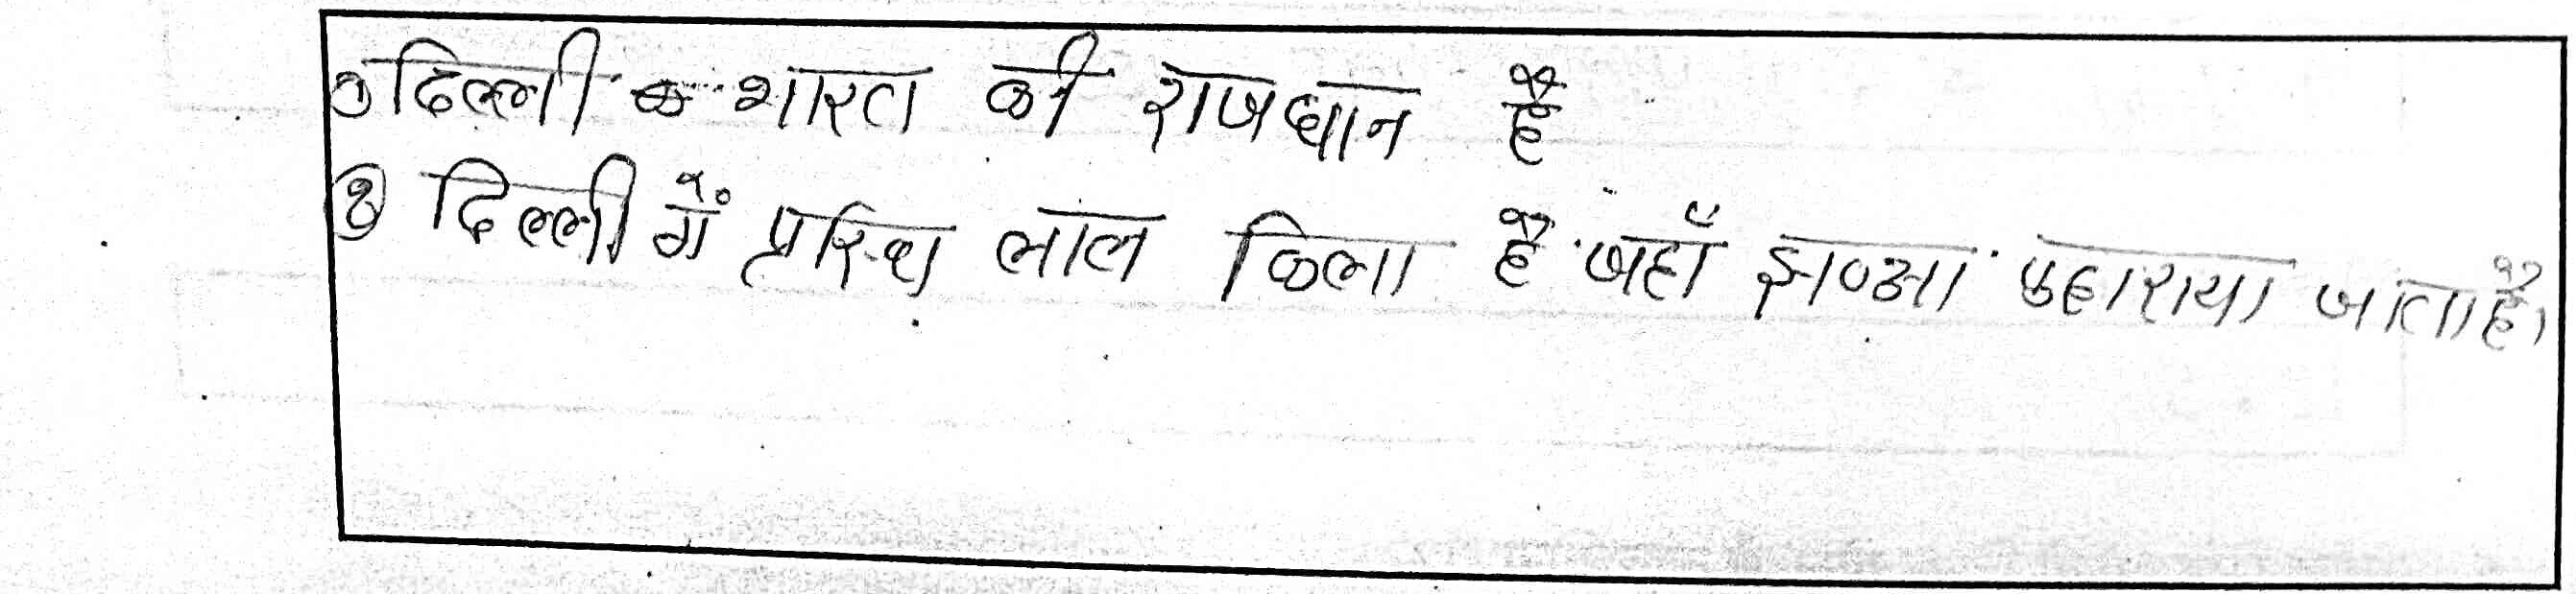 ① दिल्ली भारत की राजधान है
② दिल्ली में प्रस्धि लाल किला है जहाँ झण्डा फुहाराया जाता है।